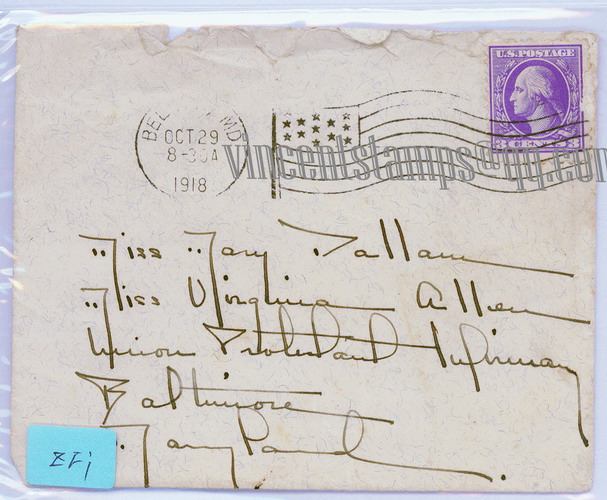 U.S. POSTAGE
3 CENTS 3
BEL MD.
OCT 29
8-30A
1918
vincentstamps@qq.com
Miss Mary Dallam
Miss Virginia Allen
Union Protestant Infirmary
Baltimore
Maryland.